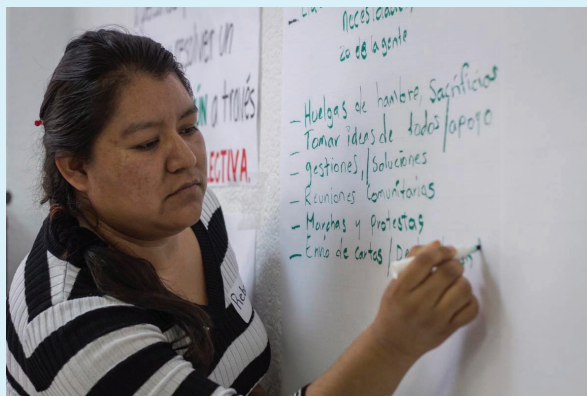 resolver un
ÓN a través
ECTIVA.
necesidades
de la gente
- Huelgas de hambre, Sacrificios
- Tomar ideas de todos/apoyo
- gestiones,/Soluciones
- Reuniones Comunitarias
- Marchas y protestas
- Envio de cartas/